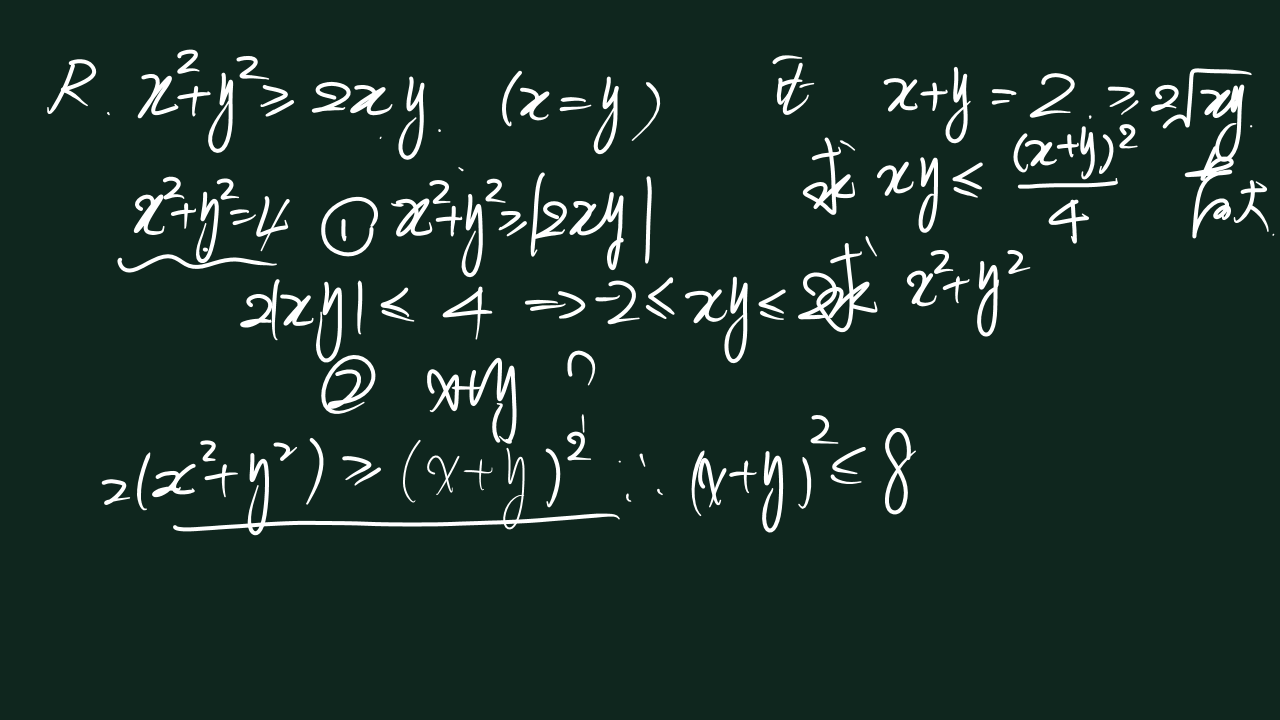 R. x²+y² ≥ 2xy (x=y)
x²+y²=4 ① x²+y² ≥ |2xy|
2|xy| ≤ 4 ⇒ -2 ≤ xy ≤ 2
② x+y ?
2(x²+y²) ≥ (x+y)² ∴ (x+y)² ≤ 8
x+y = 2 ≥ 2√xy
求 xy ≤ (x+y)²/4 有最大
求 x²+y²